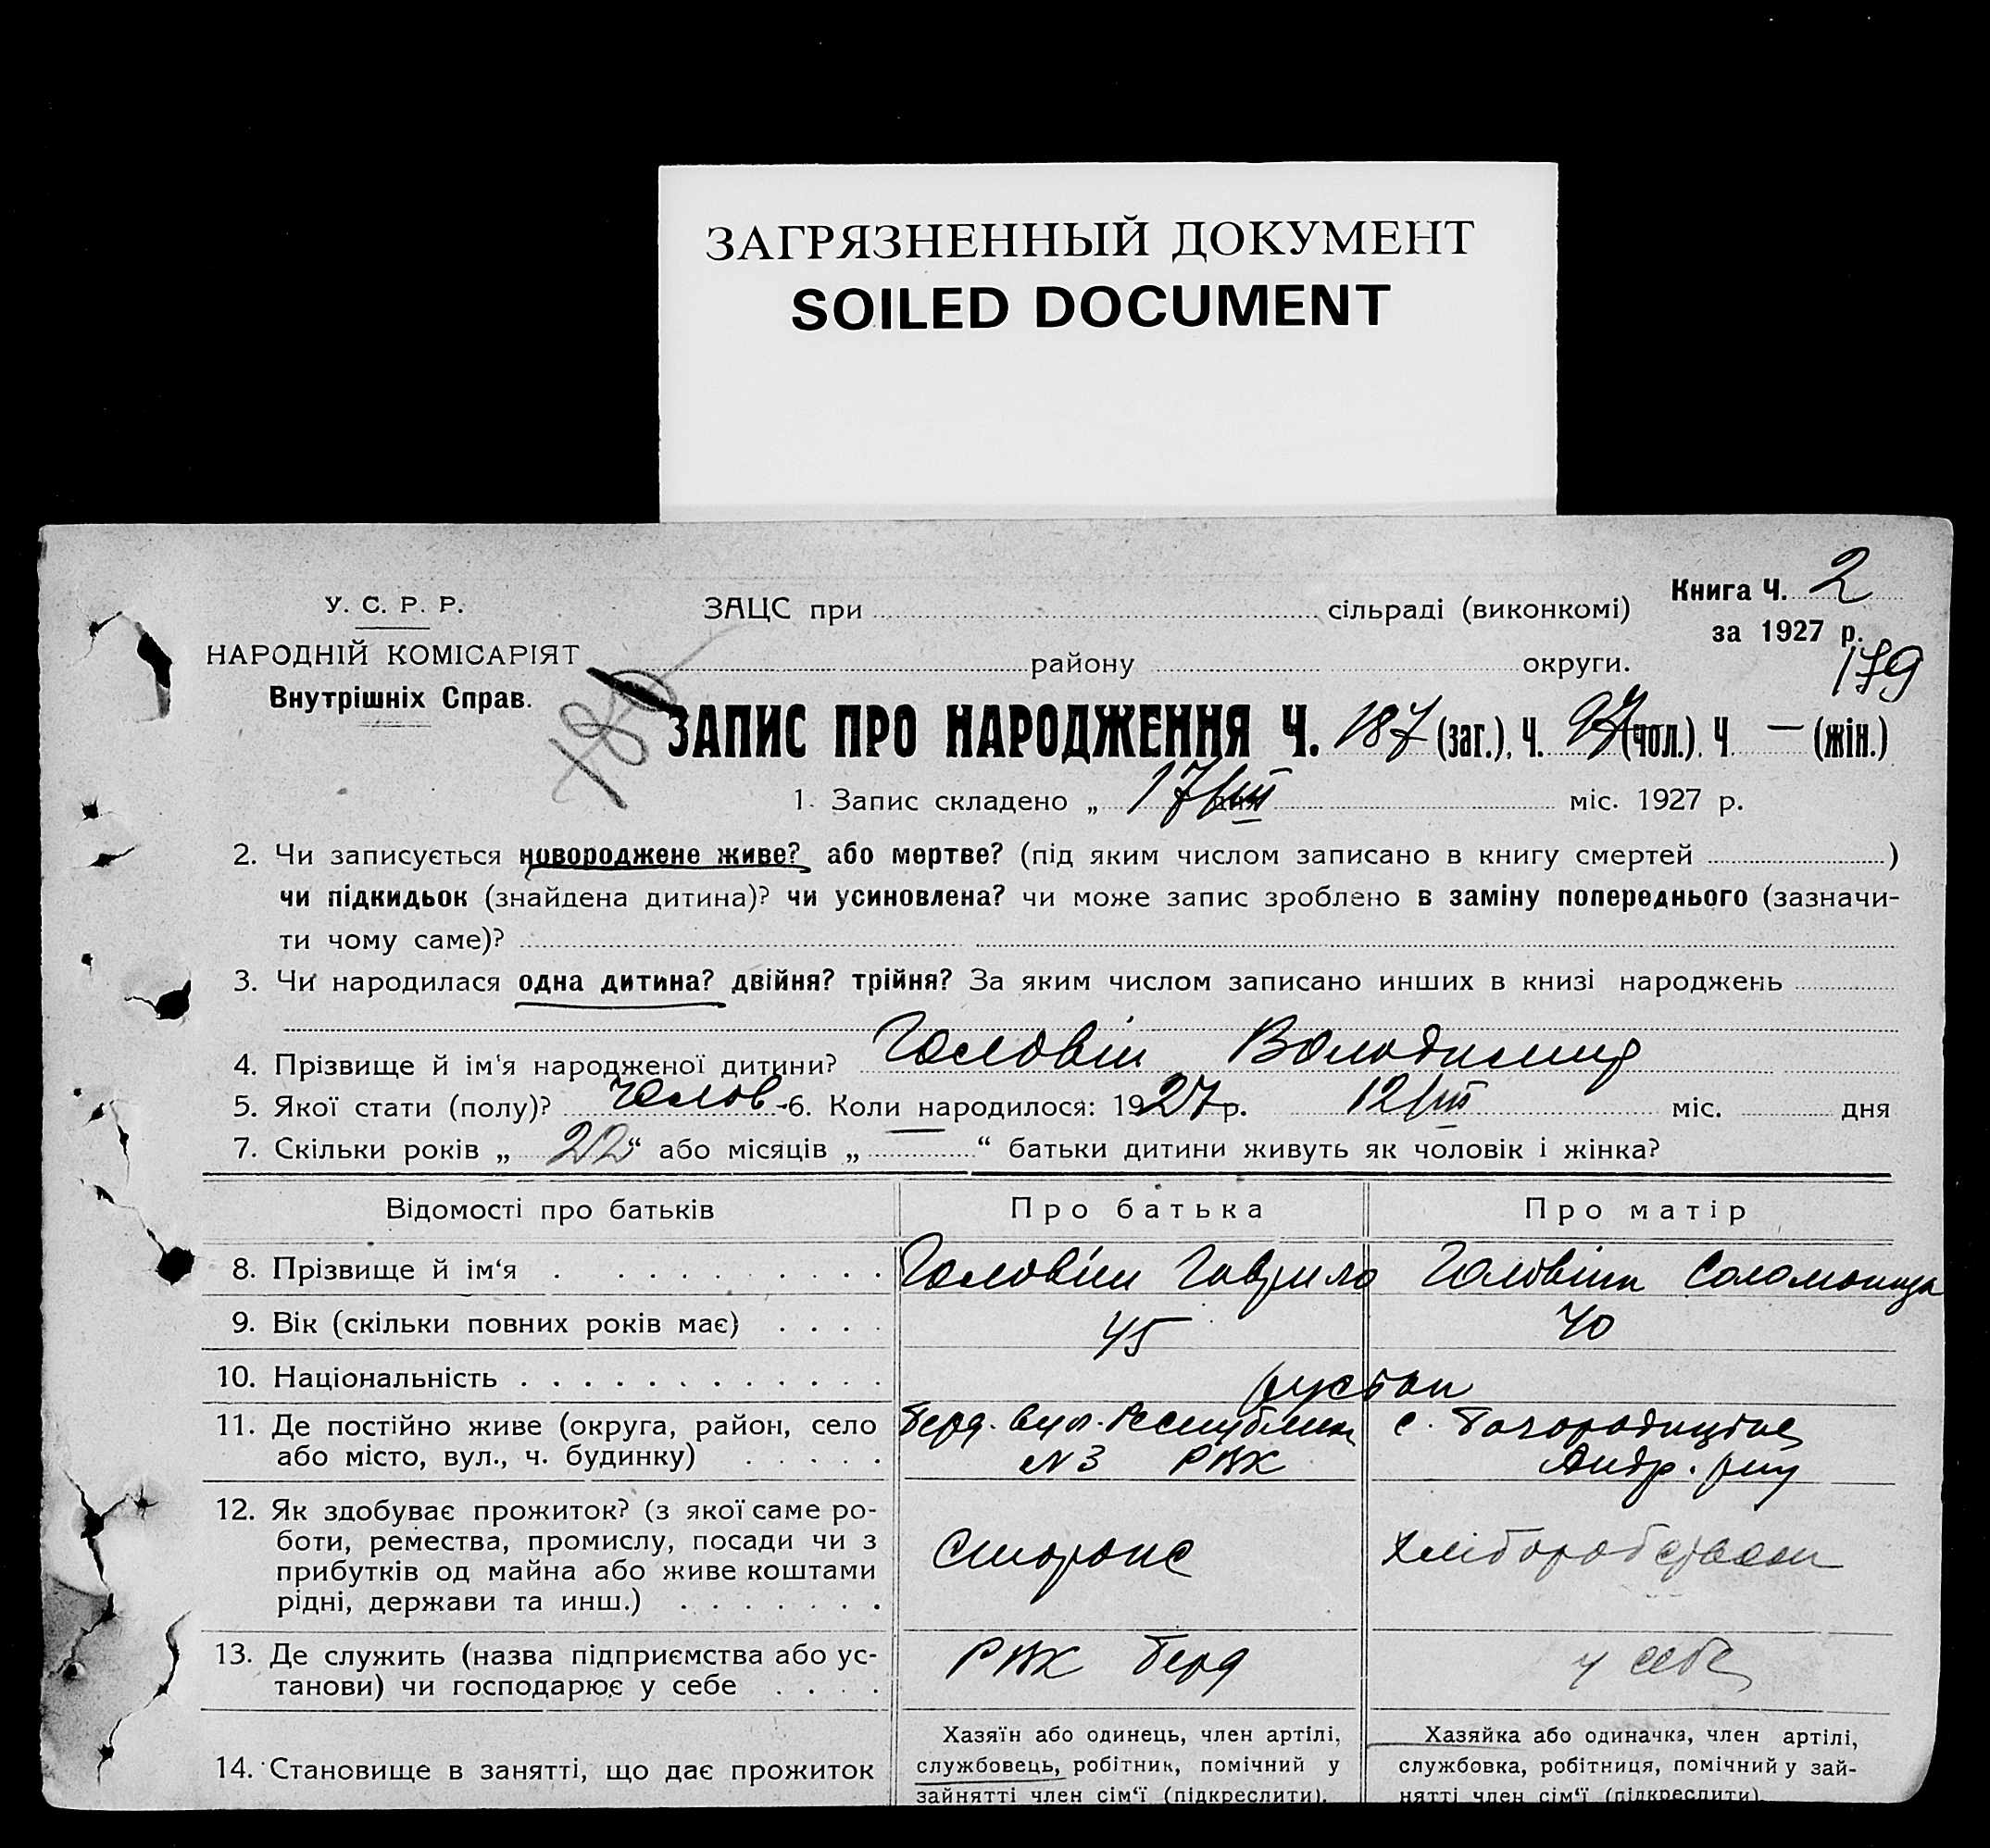 ЗАГРЯЗНЕННЫЙ ДОКУМЕНТ
SOILED DOCUMENT
Книга Ч. 2
У. С. Р. Р.
ЗАЦС при сільраді (виконкомі)
за 1927 р.
НАРОДНІЙ КОМІСАРІЯТ
району округи.
179
Внутрішніх Справ.
180
ЗАПИС ПРО НАРОДЖЕННЯ Ч. 187 (заг.), Ч. 97 (чол.). Ч — (жін.)
1. Запис складено „ 17/III міс. 1927 р.
2. Чи записується новороджене живе? або мертве? (під яким числом записано в книгу смертей )
чи підкидьок (знайдена дитина)? чи усиновлена? чи може запис зроблено в заміну попереднього (зазначи-
ти чому саме)?
3. Чи народилася одна дитина? двійня? трійня? За яким числом записано инших в книзі народжень
4. Прізвище й ім'я народженої дитини? Головін Володимир
5. Якої стати (полу)? Чолов 6. Коли народилося: 1927 р. 12/III міс. дня
7. Скільки років „ 22 “ або місяців „ “ батьки дитини живуть як чоловік і жінка?
Відомості про батьків Про батька Про матір
8. Прізвище й ім'я Головін Гаврило Головіна Соломонида
9. Вік (скільки повних років має) 45 40
10. Національність
11. Де постійно живе (округа, район, село Берд. вул. Республіки с.
або місто, вул., ч. будинку) N3 РВК Андр. рну
12. Як здобуває прожиток? (з якої саме ро-
боти, ремества, промислу, посади чи з Сторож Хліборобством
прибутків од майна або живе коштами
рідні, держави та инш.)
13. Де служить (назва підприємства або ус- РВК Берд у себе
танови) чи господарює у себе
Хазяїн або одинець, член артілі, Хазяйка або одиначка, член артілі,
14. Становище в занятті, що дає прожиток службовець, робітник, помічний у службовка, робітниця, помічний у зай-
зайнятті член сім'ї (підкреслити). нятті член сім'ї (підкреслити)